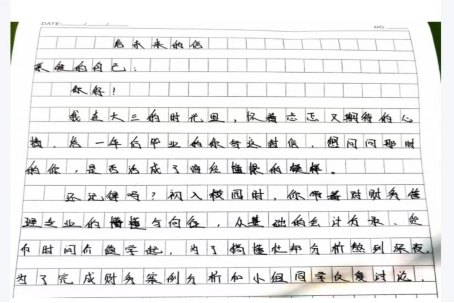 DATE: / / NO.
给未来的信
亲爱的自己：
你好！
我在大三的时光里，怀着忐忑又期待的心
情，给一年后毕业的你写这封信，想问问那时
的你，是否活成了曾经憧憬的模样。
还记得吗？初入校园时，你带着对财务管
理专业的憧憬与向往，从基础的会计分录、
时间价值学起，为了搞懂杜邦分析熬到深夜，
为了完成财务案例分析和小组同学反复讨论，